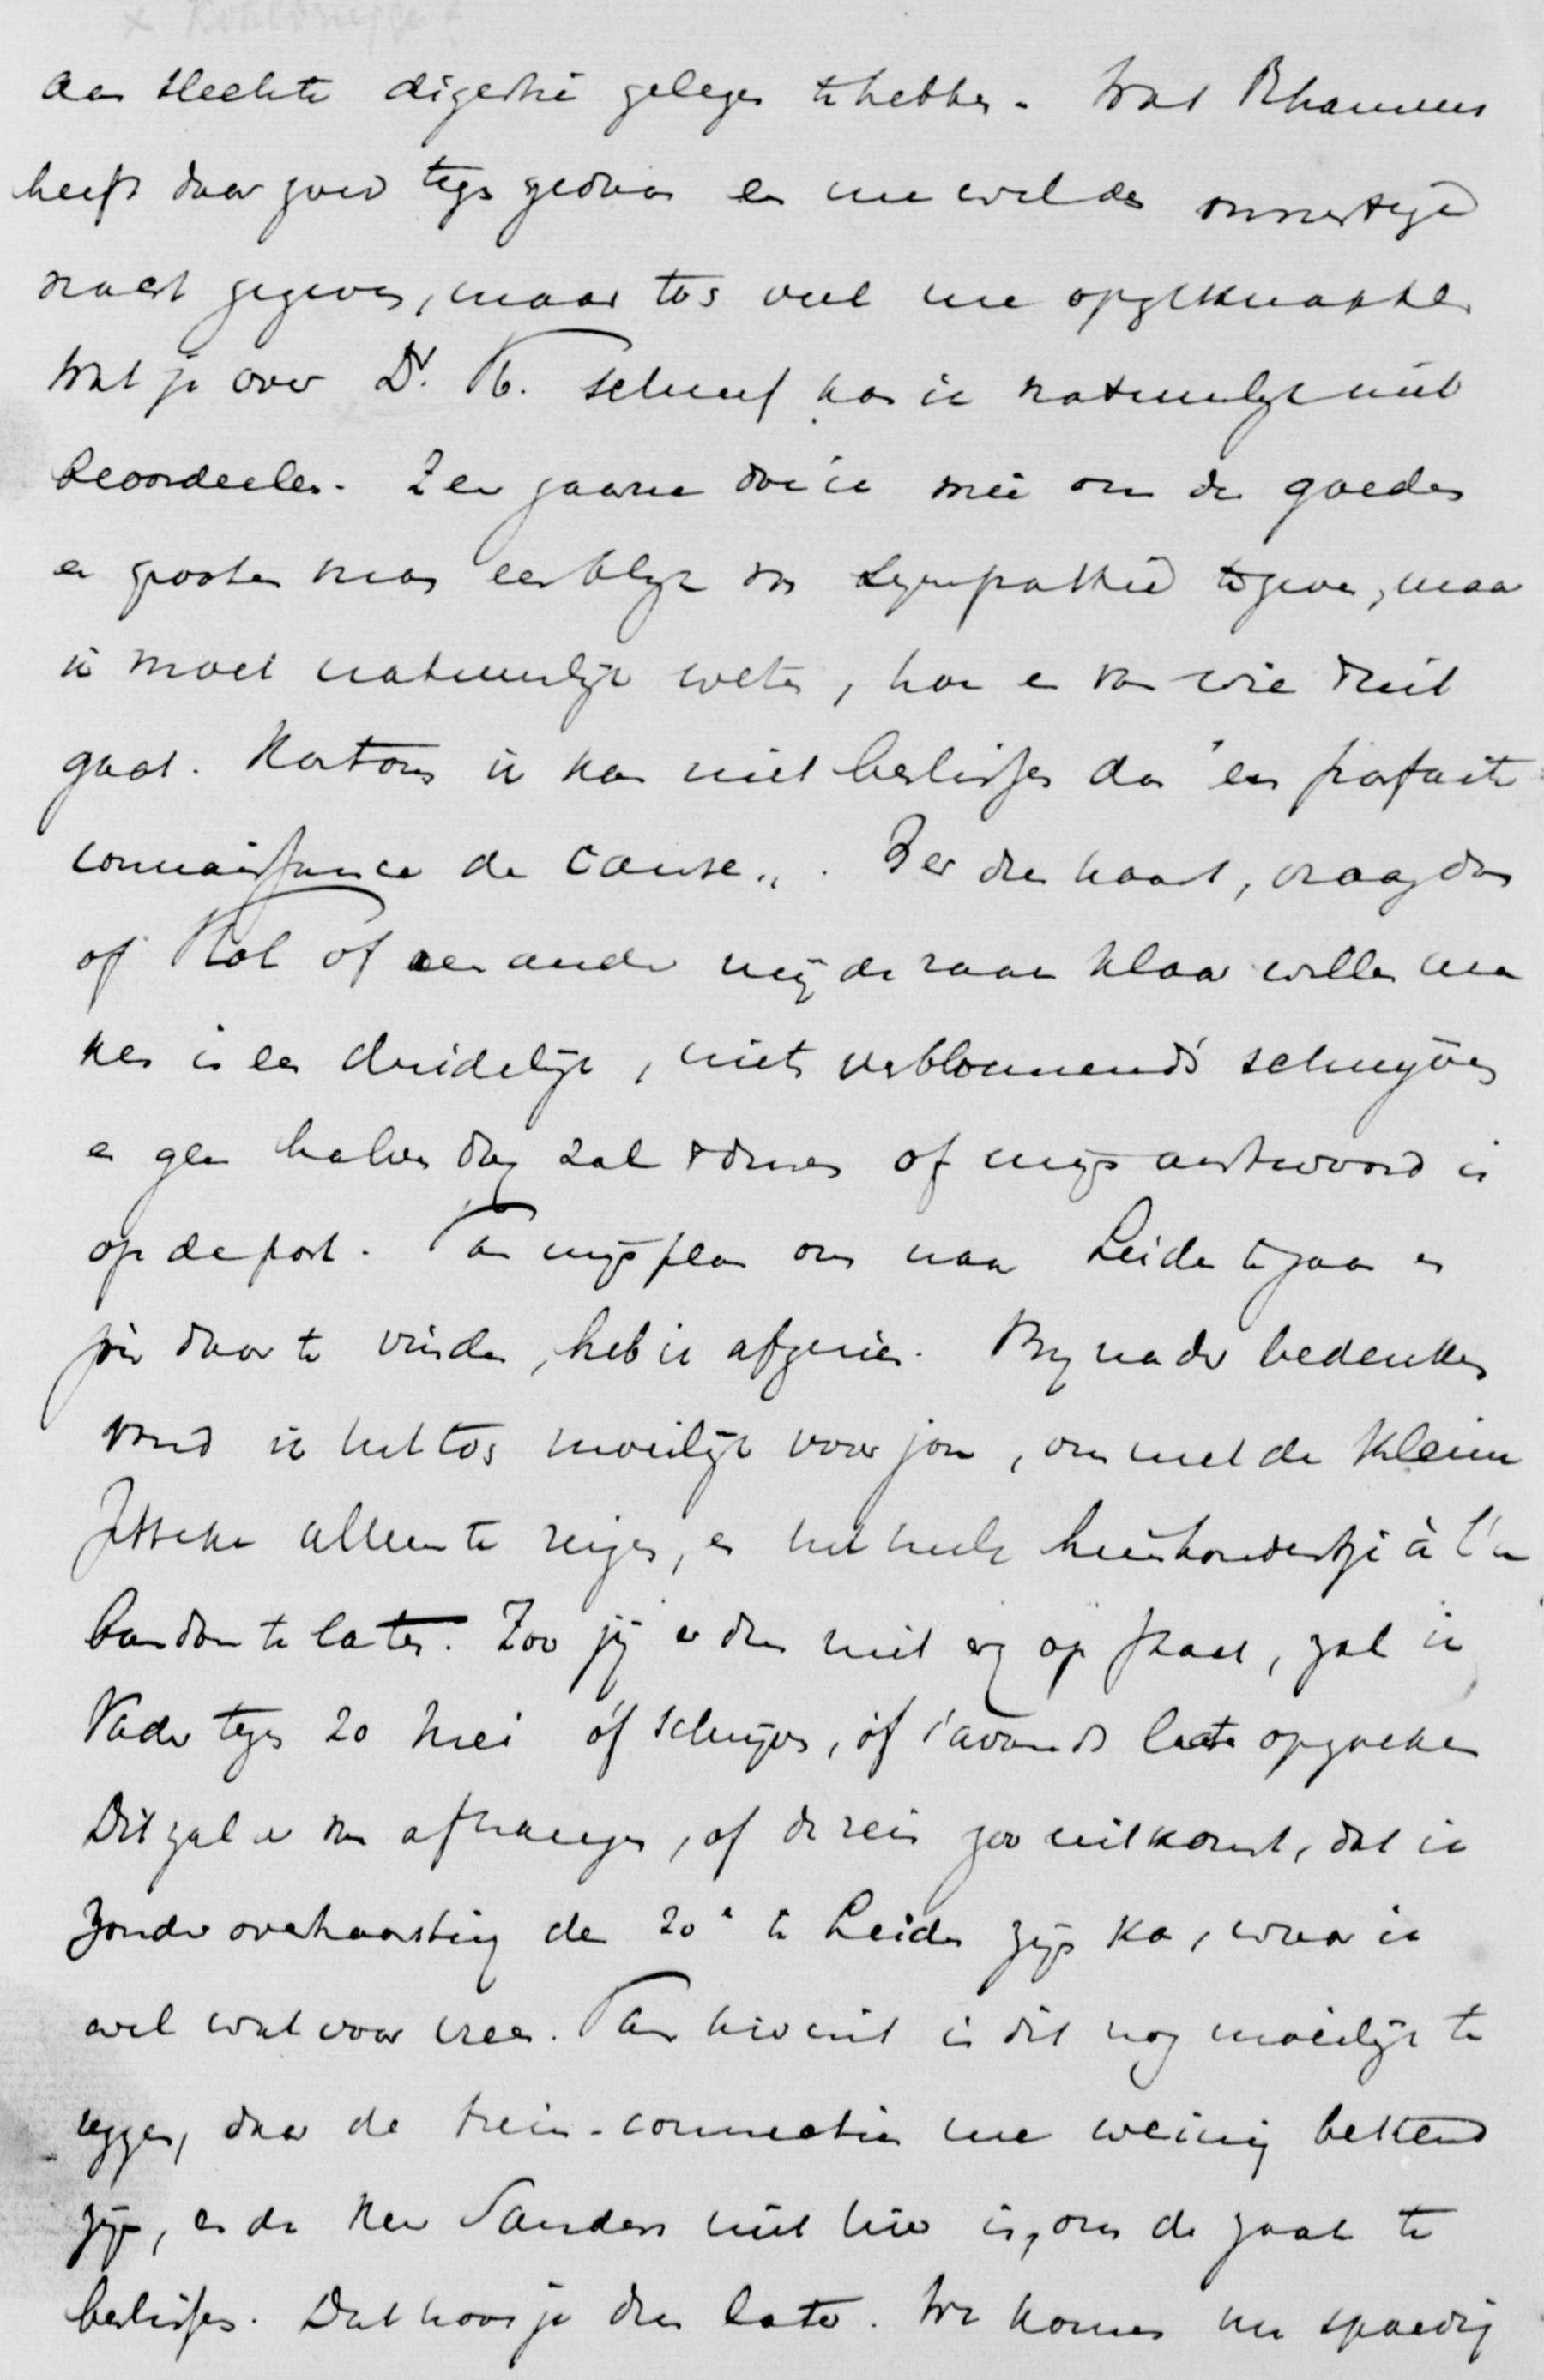 aan slechte digestie gelegen te hebben. Wat Rhamnus
heeft daar goed tegen gedaan en me wel den onnoodige
naast gegeven, maar tog veel me opgeknapt.
Wat je over Dr. K. schreef kan ik natuurlijk niet
beoordeelen. Zeer gaarne doe ik mee om den goeden
en grooten man een blijk van sympathie te geven, maar
ik moet natuurlijk weten, hoe en van wie dit uit
gaat. Kortom ik kan niet beslissen dan "en parfaite
connaissance de cause". Is er dus haast, vraag dan
of Kol of een ander mij de zaak klaar willen ma
ken in een duidelijk, niet verbloemend schrijven
en geen halven dag zal komen of mijn antwoord is
op de post. Van mijn plan om naar Leiden te gaan en
jou daar te vinden, heb ik afgezien. Bij nader bedenken
vond ik het tog moeilijk voor jou, om met de kleine
Jetteke alleen te reizen, en het heele huishoudentje à l'a
bandon te laten. Zoo jij er dus niet erg op staat, zal ik
Vader tegen 20 Mei òf schrijven, òf 's avonds laat opzoeken
Dit zal er van afhangen, of de reis zoo uitkomt, dat ik
zonder overhaasting den 20e te Leiden zijn kan, waar ik
wel wat voor vrees. Van hieruit is dit nog moeilijk te
zeggen, daar de trein-connectien me weinig bekend
zijn, en de Heer Sanders niet hier is, om de zaak te
beslissen. Dat hoor je dus later. We komen nu spoedig